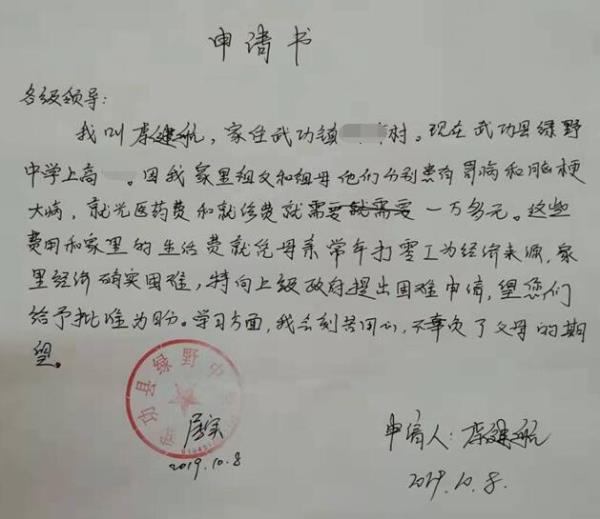 申请书
各级领导：
我叫李建航，家住武功镇 村。现在武功县绿野
中学上高 。因我家里祖父和祖母他们分别患有胃病和脑梗
大病，就光医药费和就住费就需要就需要一万多元。这些
费用和家里的生活费就凭母亲常年打零工为经济来源，家
里经济确实困难，特向上级政府提出困难申请，望您们
给予批准为盼。学习方面，我会刻苦用心，不辜负了父母的期
望。
武功县绿野中
属实
2019.10.8
申请人：李建航
2019.10.8.